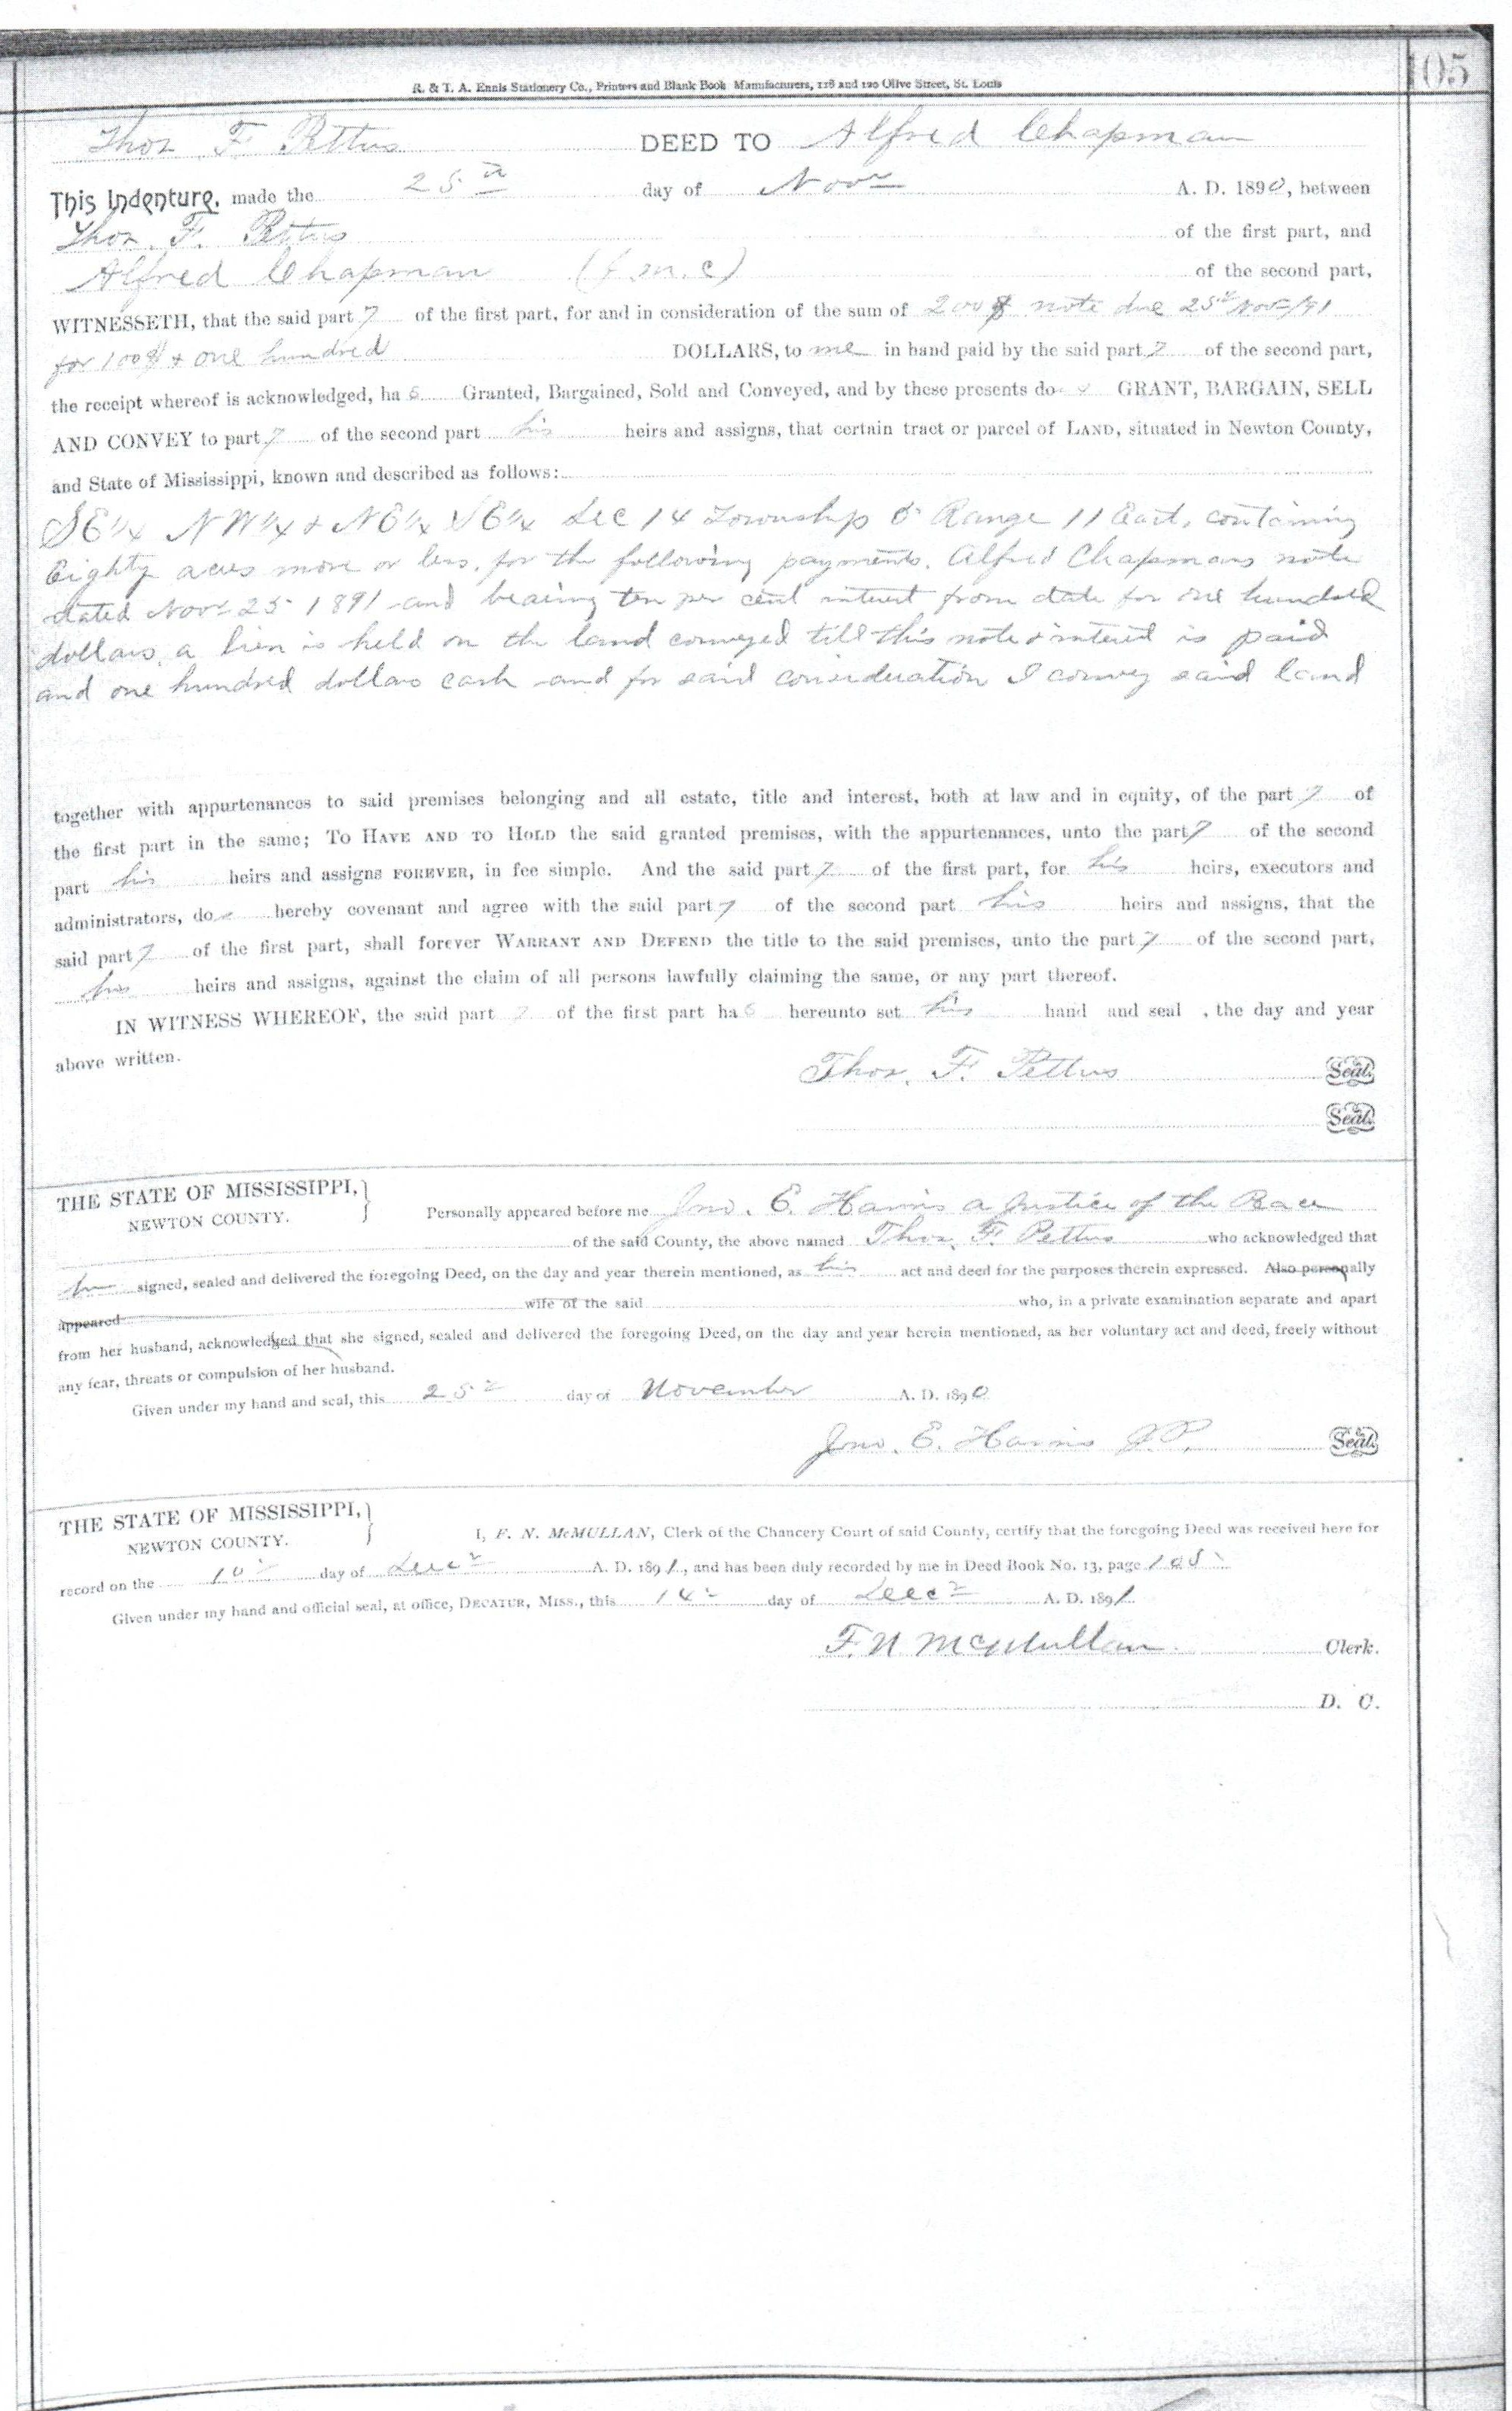 105
R. & T. A. Ennis Stationery Co., Printers and Blank Book Manufacturers, 118 and 120 Olive Street, St. Louis
Thos F. Pettus DEED TO Alfred Chapman
This Indenture, made the 25th day of Novr A. D. 1890, between
Thos. F. Pettus of the first part, and
Alfred Chapman (f.m.c) of the second part,
WITNESSETH, that the said party of the first part, for and in consideration of the sum of 200$ note due 25th Nov /91
for 100$ & one hundred DOLLARS, to me in hand paid by the said party of the second part,
the receipt whereof is acknowledged, has Granted, Bargained, Sold and Conveyed, and by these presents do GRANT, BARGAIN, SELL
AND CONVEY to party of the second part his heirs and assigns, that certain tract or parcel of LAND, situated in Newton County,
and State of Mississippi, known and described as follows:
SE 1/4 NW 1/4 & NE 1/4 SE 1/4 Sec 14 Township Range 11 East, containing
Eighty acres more or less, for the following payments. Alfred Chapmans note
dated Novr 25 1891 and bearing ten per cent interest from date for one hundred
dollars, a lien is held on the land conveyed till this note & interest is paid
and one hundred dollars cash and for said consideration I convey said land
together with appurtenances to said premises belonging and all estate, title and interest, both at law and in equity, of the party of
the first part in the same; TO HAVE AND TO HOLD the said granted premises, with the appurtenances, unto the party of the second
part his heirs and assigns FOREVER, in fee simple. And the said party of the first part, for his heirs, executors and
administrators, do hereby covenant and agree with the said party of the second part his heirs and assigns, that the
said party of the first part, shall forever WARRANT AND DEFEND the title to the said premises, unto the party of the second part,
his heirs and assigns, against the claim of all persons lawfully claiming the same, or any part thereof.
IN WITNESS WHEREOF, the said party of the first part has hereunto set his hand and seal , the day and year
above written.
Thos. F. Pettus Seal.
Seal.
THE STATE OF MISSISSIPPI,
NEWTON COUNTY.
Personally appeared before me Jno. E. Harris a Justice of the Peace
of the said County, the above named Thos. F. Pettus who acknowledged that
he signed, sealed and delivered the foregoing Deed, on the day and year therein mentioned, as his act and deed for the purposes therein expressed. Also personally
appeared wife of the said who, in a private examination separate and apart
from her husband, acknowledged that she signed, sealed and delivered the foregoing Deed, on the day and year herein mentioned, as her voluntary act and deed, freely without
any fear, threats or compulsion of her husband.
Given under my hand and seal, this 25th day of November A. D. 1890
Jno. E. Harris J.P. Seal.
THE STATE OF MISSISSIPPI,
NEWTON COUNTY.
I, F. N. McMULLAN, Clerk of the Chancery Court of said County, certify that the foregoing Deed was received here for
record on the 10th day of Decr A. D. 1891, and has been duly recorded by me in Deed Book No. 13, page 105
Given under my hand and official seal, at office, DECATUR, MISS., this 14th day of Decr A. D. 1891
F. N McMullan Clerk.
D. C.